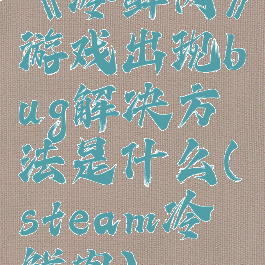 《冷鲜肉》
游戏出现b
ug解决方
法是什么(
steam冷